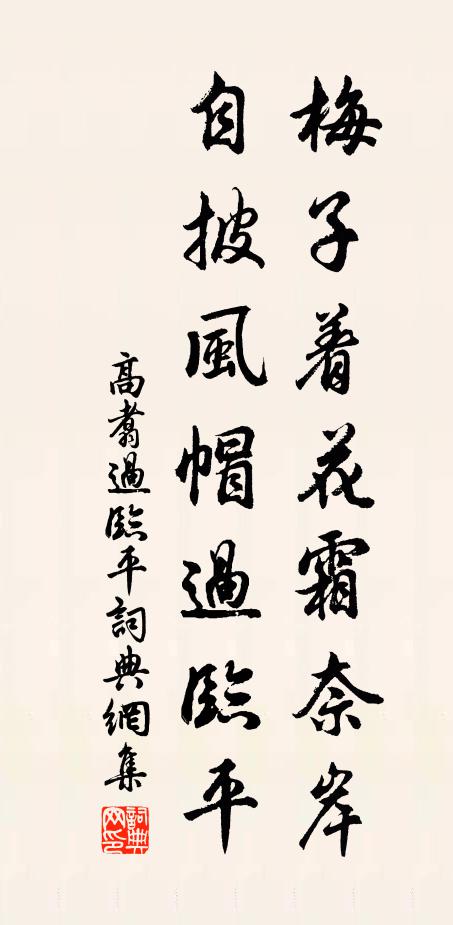 梅子着花霜奈岸
自披風帽過臨平
高翥過臨平詞典網集
詞典網印